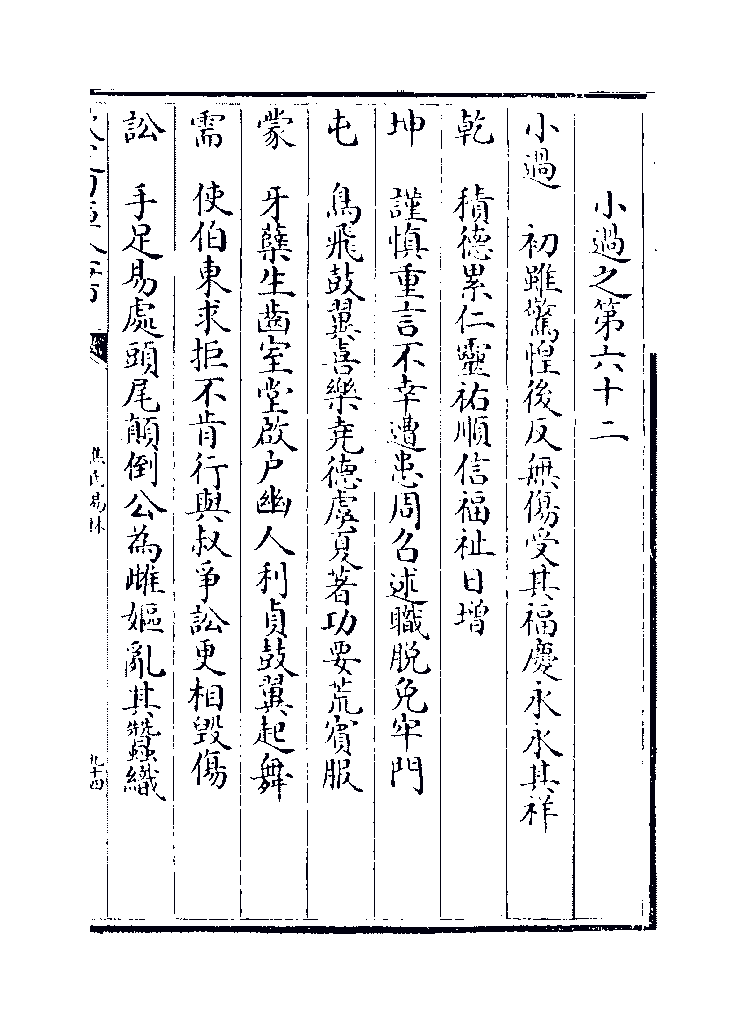 小過之第六十二
小過　初雖驚惶後反無傷受其福慶永永其祥
乾　積德累仁靈祐順信福祉日增
坤　謹慎重言不幸遭患周召述職脫免牢門
屯　鳥飛鼓翼喜樂堯德虞夏著功要荒賓服
蒙　牙蘖生齒室堂啟户幽人利貞鼓翼起舞
需　使伯東求拒不肯行與叔爭訟更相毀傷
訟　手足易處頭尾顛倒公為雌嫗亂其蠶織
焦氏易林
九十四